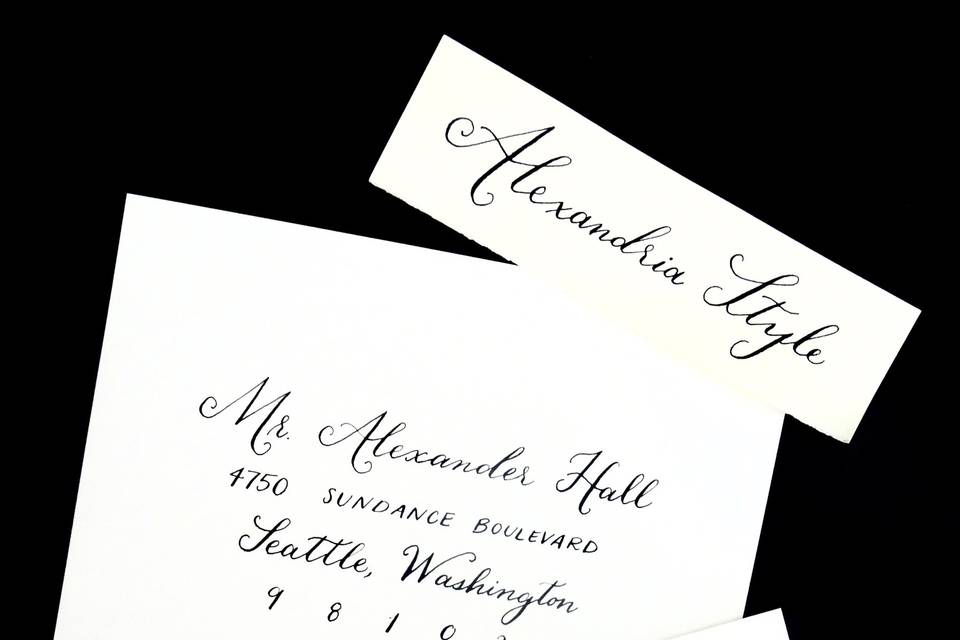 Alexandria Style
Mr. Alexander Hall
4750 SUNDANCE BOULEVARD
Seattle, Washington
9 8 1 0